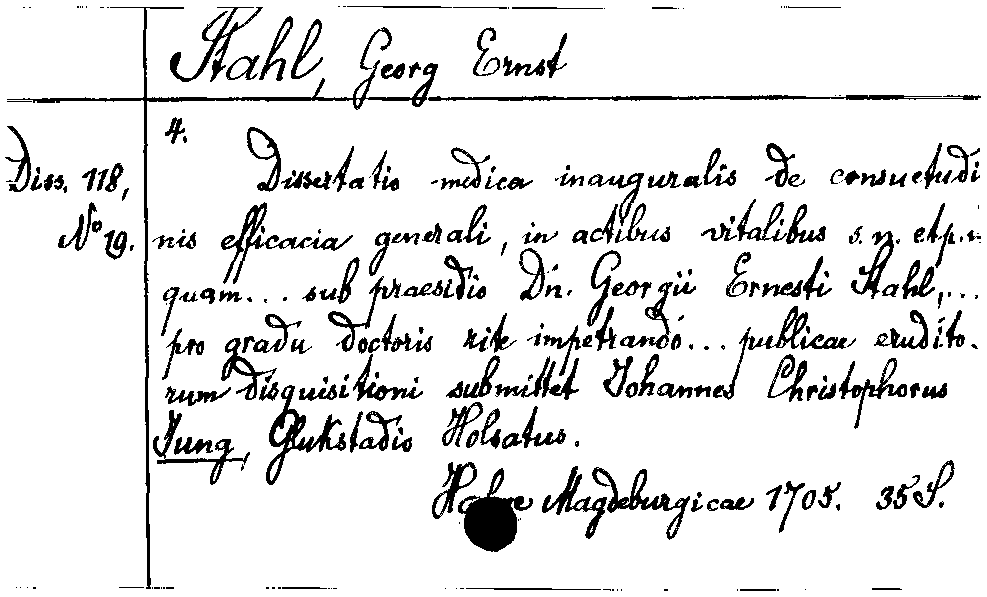 Stahl, Georg Ernst
4.
Diss. 118,
No 19.
Dissertatio medica inauguralis de consuetudi
nis efficacia generali, in actibus vitalibus s. n. et p.
quam... sub praesidio Dn. Georgii Ernesti Stahl,...
pro gradu doctoris rite impetrando... publicae erudito-
rum disquisitioni submittet Johannes Christophorus
Jung, Glukstadio Holsatus.
Halae Magdeburgicae 1705. 35 S.